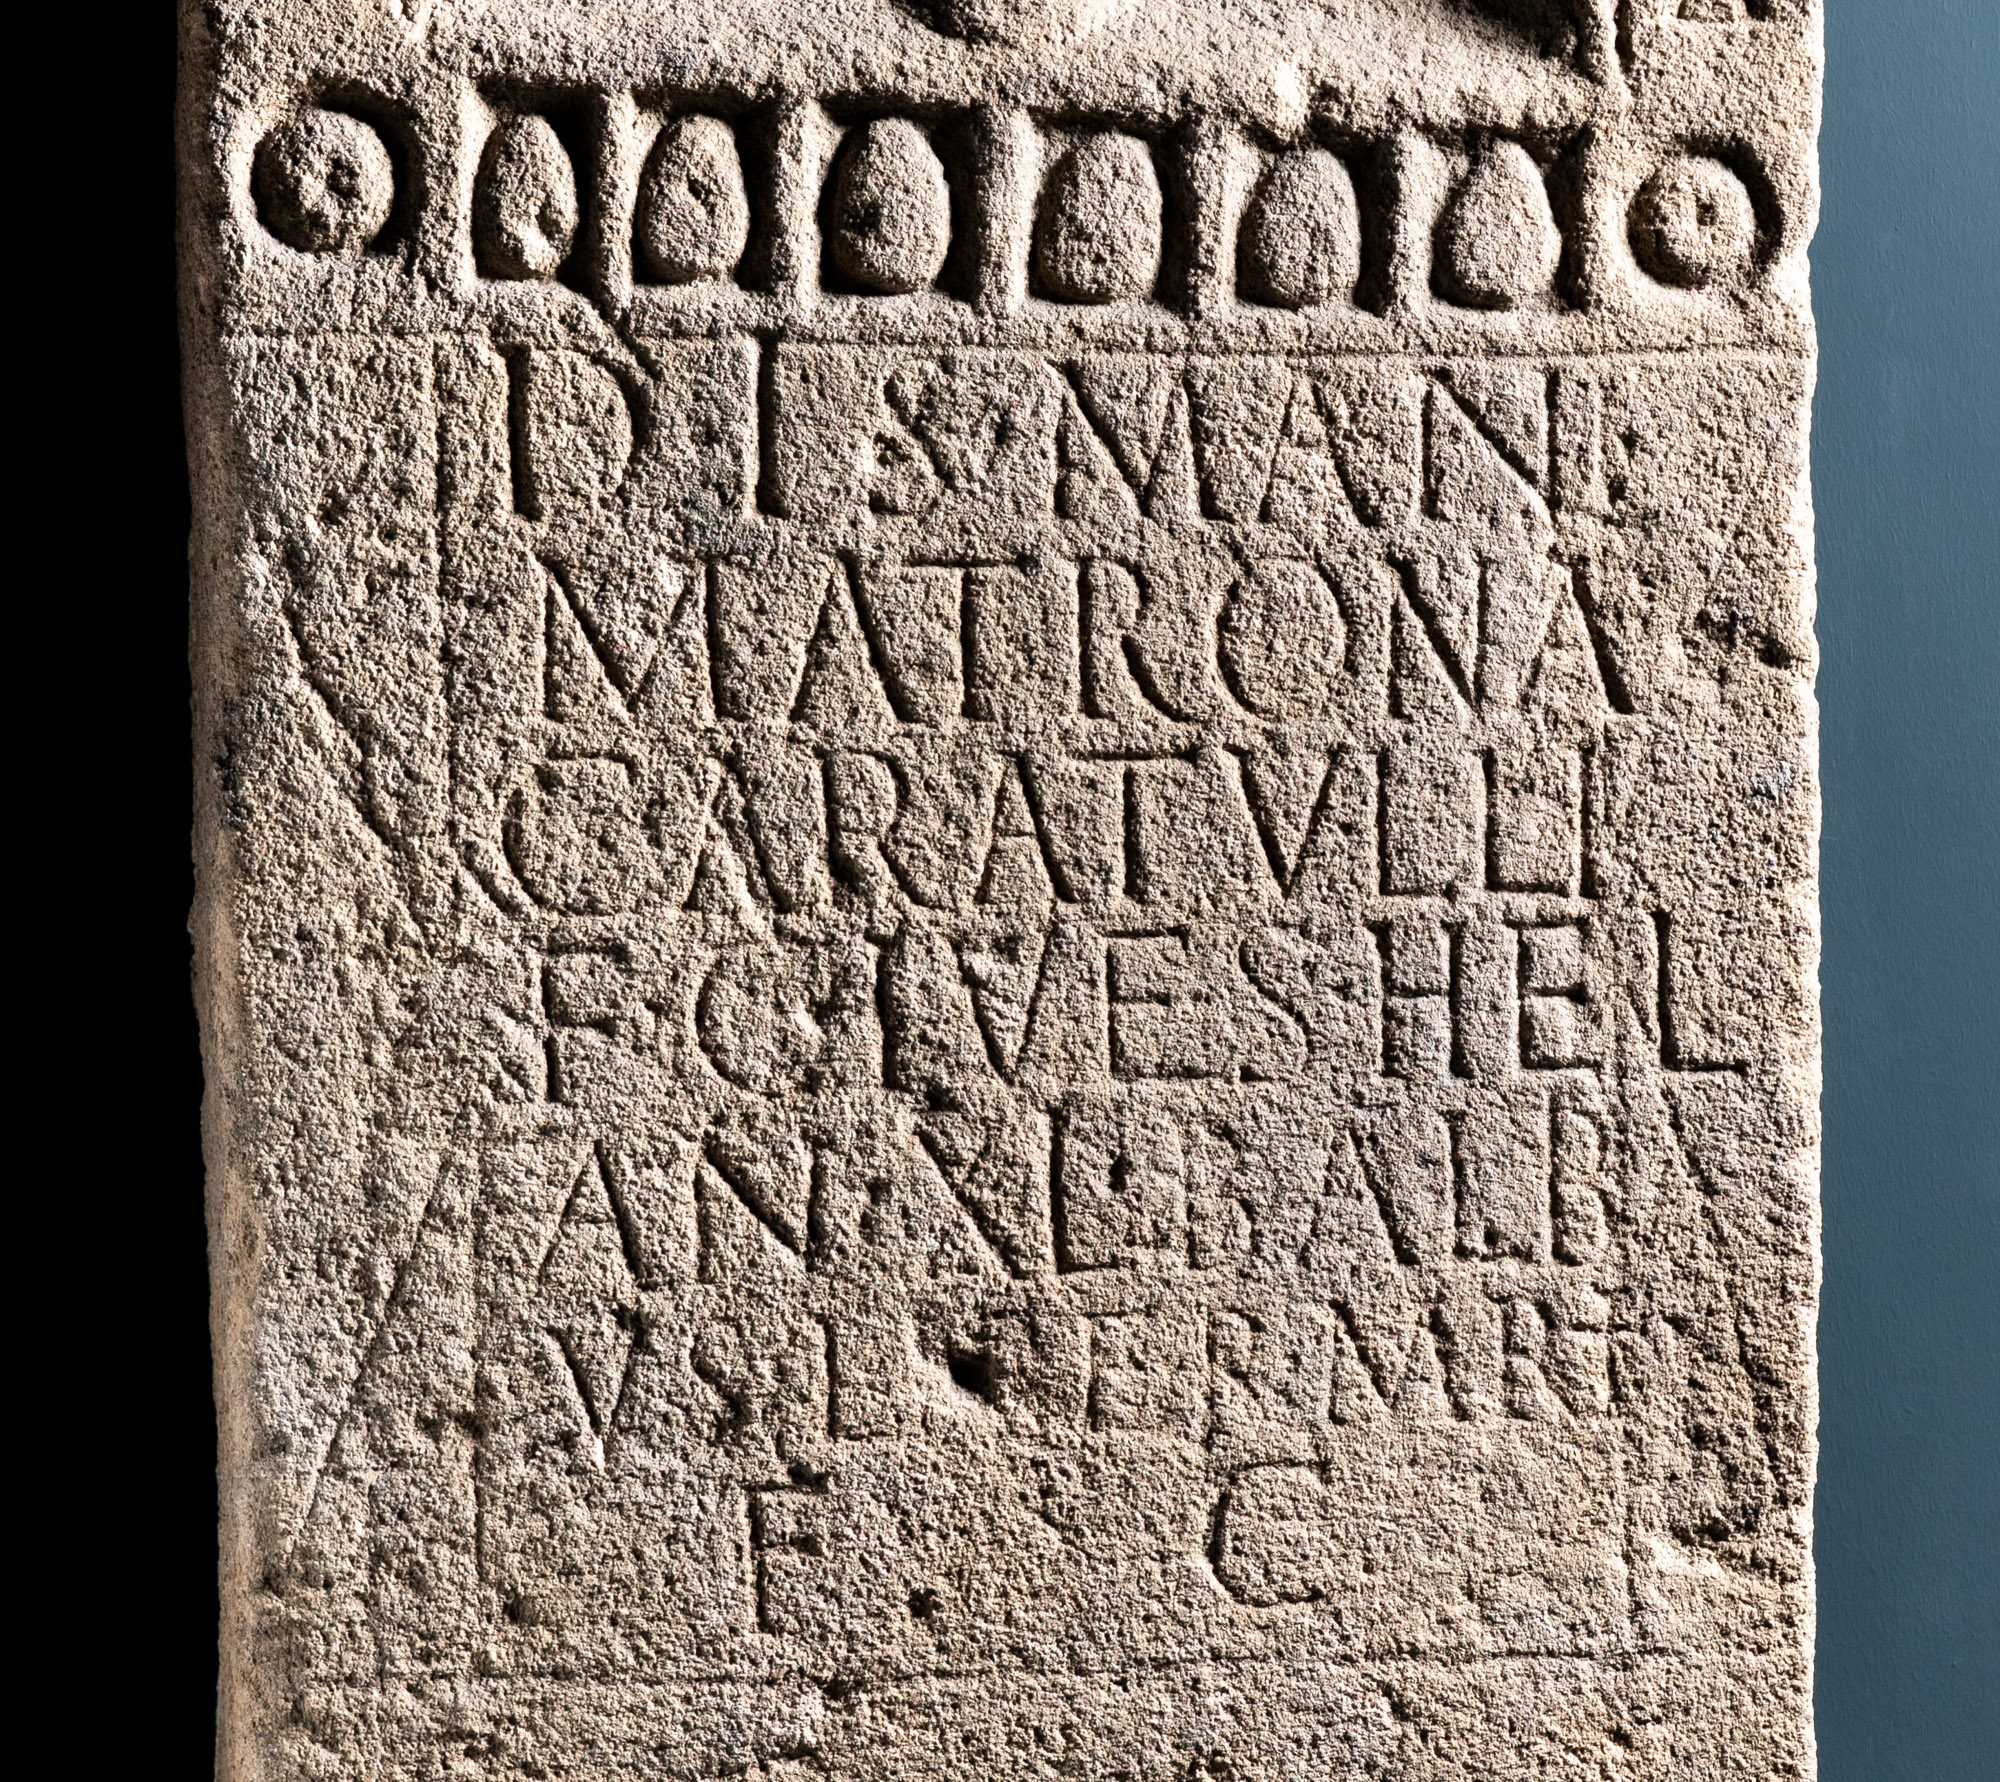 DIS MANI
MATRONA
CARATVLLI
F CIVES HEL
AN XL BALB
VS L TER MRT
F C